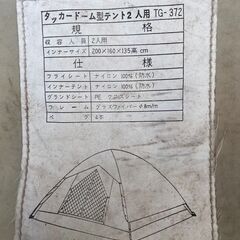 タッカードーム型テント2人用 TG-372
規格
収容人員 2人用
インナーサイズ 200×160×135高cm
仕様
フライシート ナイロン 100%(防水)
インナーテント ナイロン 100%(防水)
グランドシート PE ワリズシート
フレーム グラスファイバー φ8m/m
ペグ 4本